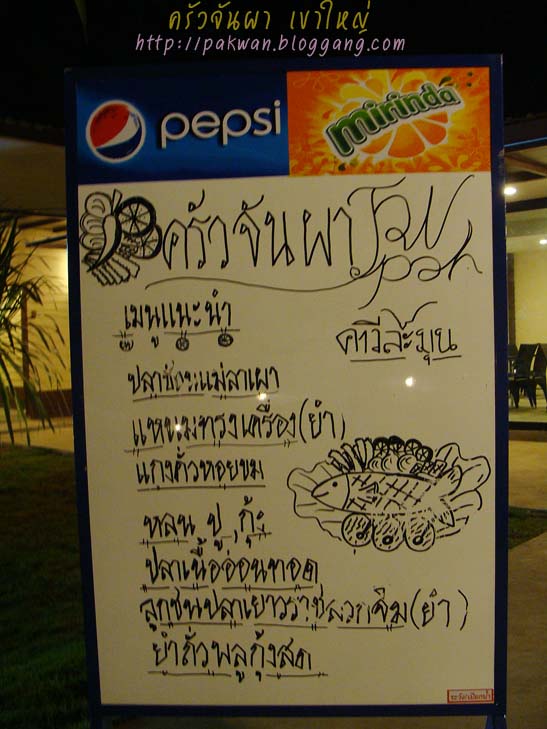 ครัวจันผา เขาใหญ่
http://pakwan.bloggang.com
pepsi
mirinda
ครัวจันผา
เมนูแนะนำ
คาวีล๊ะมุน
ปลาช่อนแม่ลาเผา
แหนมทรงเครื่อง(ยำ)
แกงคั่วหอยขม
หลน ปู กุ้ง
ปลาเนื้ออ่อนทอด
ลูกชิ้นปลาเยาวราชลวกจิ้ม(ยำ)
ยำถั่วพลูกุ้งสด